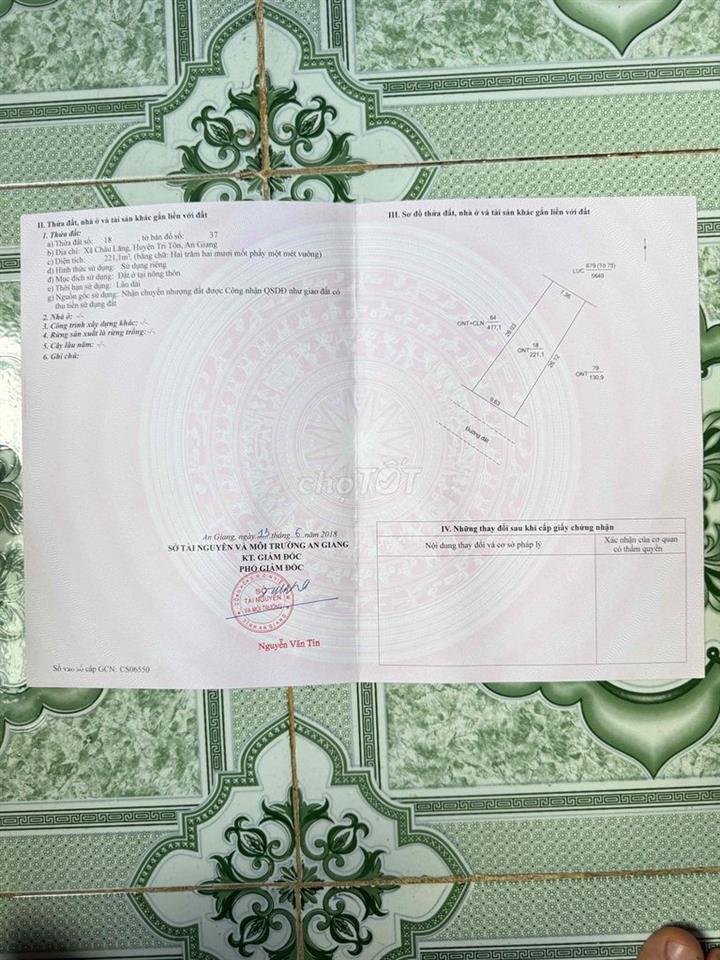 II. Thửa đất, nhà ở và tài sản khác gắn liền với đất
1. Thửa đất:
a) Thửa đất số: 18 , tờ bản đồ số: 37
b) Địa chỉ: Xã Châu Lăng, Huyện Tri Tôn, An Giang
c) Diện tích: 221,1m², (bằng chữ: Hai trăm hai mươi mốt phẩy một mét vuông)
d) Hình thức sử dụng: Sử dụng riêng
đ) Mục đích sử dụng: Đất ở tại nông thôn
e) Thời hạn sử dụng: Lâu dài
g) Nguồn gốc sử dụng: Nhận chuyển nhượng đất được Công nhận QSDĐ như giao đất có
thu tiền sử dụng đất
2. Nhà ở: -/-
3. Công trình xây dựng khác: -/-
4. Rừng sản xuất là rừng trồng: -/-
5. Cây lâu năm: -/-
6. Ghi chú:
An Giang, ngày 13 tháng 6 năm 2018
SỞ TÀI NGUYÊN VÀ MÔI TRƯỜNG AN GIANG
KT. GIÁM ĐỐC
PHÓ GIÁM ĐỐC
SỞ
TÀI NGUYÊN
VÀ MÔI TRƯỜNG
TỈNH AN GIANG
Nguyễn Văn Tín
Số vào sổ cấp GCN: CS06550
III. Sơ đồ thửa đất, nhà ở và tài sản khác gắn liền với đất
LUC 879 (Tờ 75)
5649
7.36
ONT+CLN 64
477,1
26.03
ONT 18
221,1
26.12
ONT 79
130,9
9.63
Đường đất
chợTỐT
IV. Những thay đổi sau khi cấp giấy chứng nhận
Nội dung thay đổi và cơ sở pháp lý
Xác nhận của cơ quan
có thẩm quyền